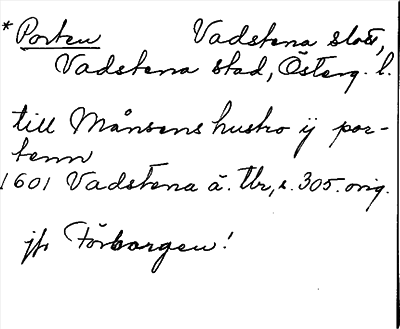 *Porten Vadstena slott,
Vadstena stad, Österg. l.
till Månsens hustro ÿ por-
tenn
1601 Vadstena ä. Tbr, s. 305. orig.
jfr Förborgen!